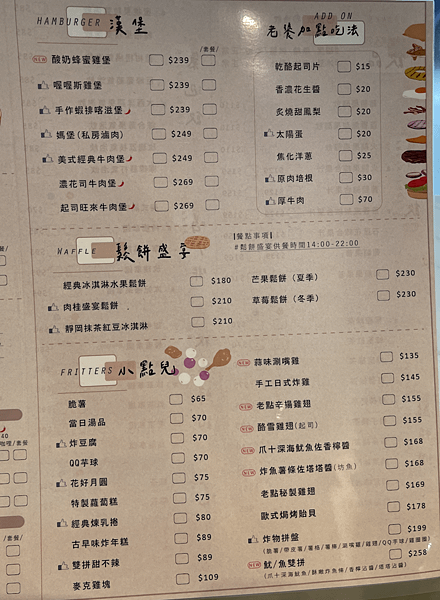 HAMBURGER 漢堡
/套餐/
NEW 酸奶蜂蜜雞堡 $239
喔喔斯雞堡 $239
手作蝦排喀滋堡 $239
媽堡(私房滷肉) $249
美式經典牛肉堡 $249
濃花司牛肉堡 $269
起司旺來牛肉堡 $269
ADD ON
老饕加點吃法
乾酪起司片 $15
香濃花生醬 $20
炙燒甜鳳梨 $20
太陽蛋 $20
焦化洋蔥 $25
原肉培根 $30
厚牛肉 $70
WAFFLE 鬆餅盛宴
[餐點事項]
#鬆餅盛宴供餐時間14:00-22:00
經典冰淇淋水果鬆餅 $180
肉桂盛宴鬆餅 $210
靜岡抹茶紅豆冰淇淋 $210
芒果鬆餅(夏季) $230
草莓鬆餅(冬季) $230
FRITTERS 小點兒
脆薯 $65
當日湯品 $70
炸豆腐 $70
QQ芋球 $70
花好月圓 $75
特製蘿蔔糕 $75
經典煉乳捲 $80
古早味炸年糕 $89
雙拼甜不辣 $89
麥克雞塊 $109
NEW 蒜味涮嘴雞 $135
手工日式炸雞 $145
NEW 老點辛揚雞翅 $155
NEW 酷雪雞翅(起司) $155
NEW 爪十深海魷魚佐香檸醬 $168
NEW 炸魚薯條佐塔塔醬(坊魚) $168
老點秘製雞翅 $169
歐式焗烤貽貝 $178
炸物拼盤 $199
NEW 魷/魚雙拼 $258